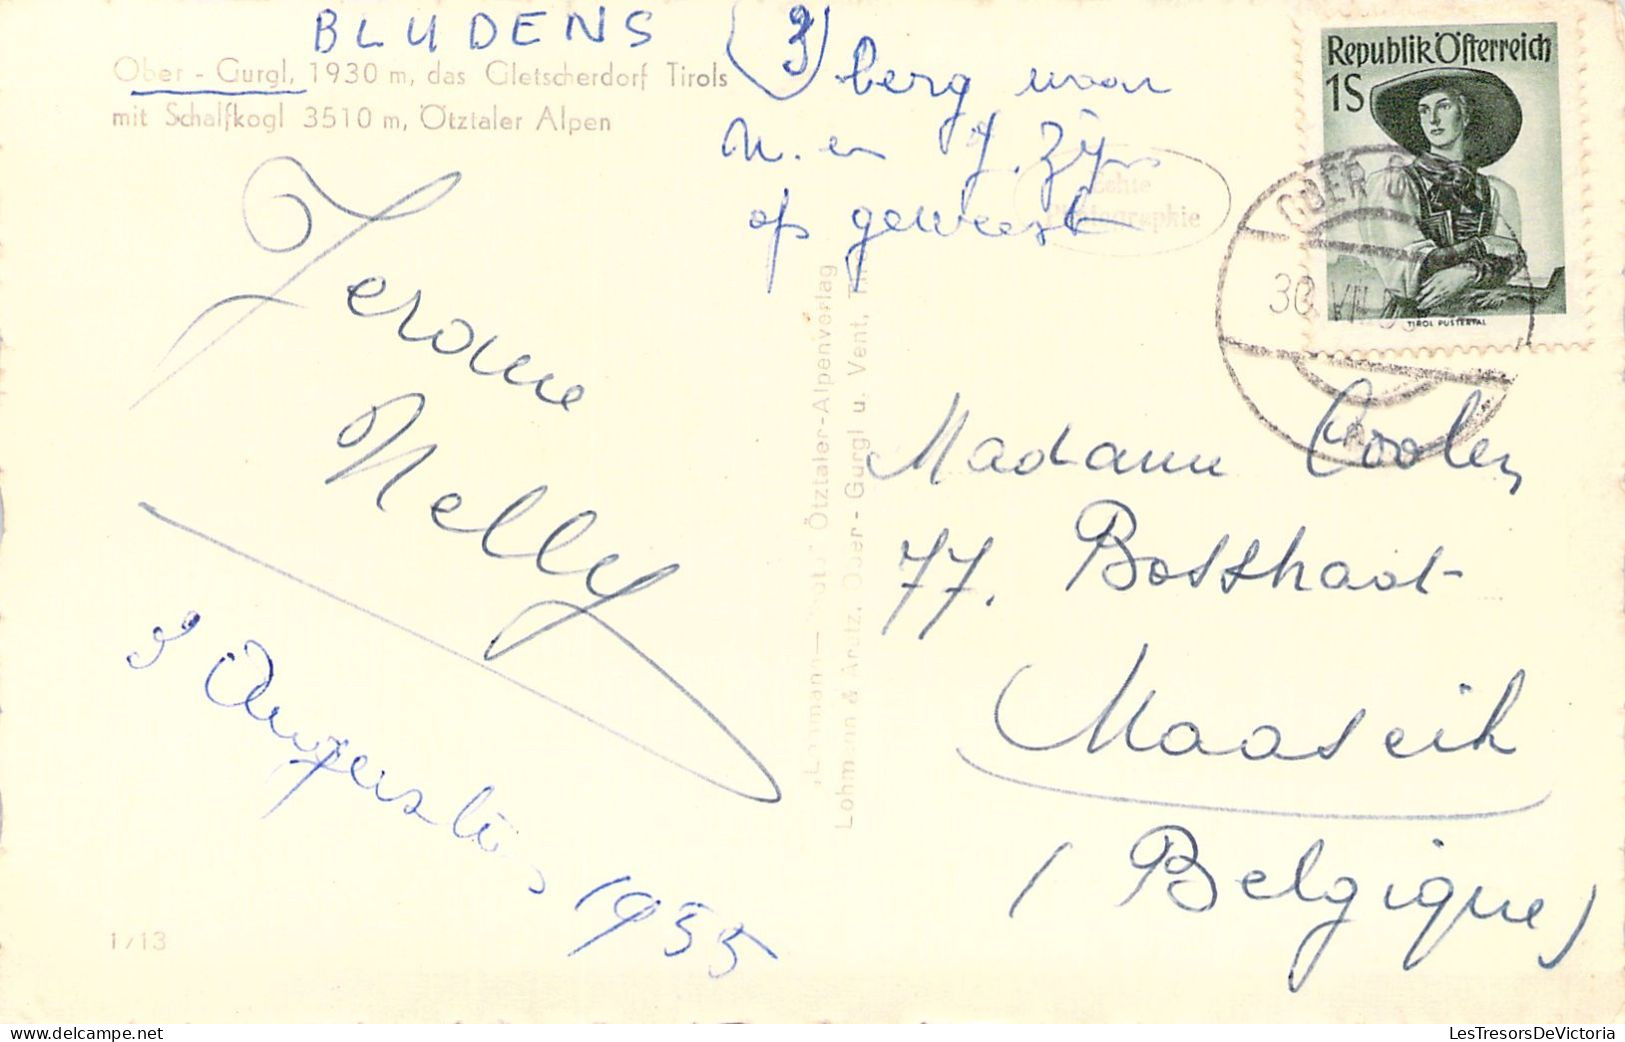 BLUDENS
Ober - Gurgl, 1930 m, das Gletscherdorf Tirols
mit Schalfkogl 3510 m, Ötztaler Alpen
(3) berg waar
N. en J. zijn
op geweest
Echte
Photographie
Jerome
Nelly
3 Augustus 1955
1/13
Ötztaler-Alpenverlag
Lohmann & Arntz, Ober-Gurgl u. Vent,
Republik Österreich
1S
TIROL PUSTERTAL
OBER
30. VII.
Madame Coolen
77. Bosstraat
Maaseik
(Belgique)
LesTresorsDeVictoria